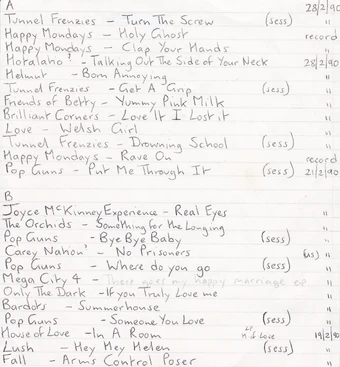 A 28/2/90
Tunnel Frenzies - Turn The Screw (sess) "
Happy Mondays - Holy Ghost record
Happy Mondays - Clap Your Hands "
Hotalaho! - Talking Out The Side of Your Neck 28/2/90
Helmut - Born Annoying "
Tunnel Frenzies - Get A Grip (sess) "
Friends of Betty - Yummy Pink Milk "
Brilliant Corners - Love It I Lost it "
Love - Welsh Girl "
Tunnel Frenzies - Drowning School (sess) "
Happy Mondays - Rave On record
Pop Guns - Put Me Through It (sess) 21/2/90
B
Joyce McKinney Experience - Real Eyes "
The Orchids - Something for the Longing "
Pop Guns - Bye Bye Baby (sess) "
Carey Nation - No Prisoners (us) "
Pop Guns - Where do you go (sess) "
Mega City 4 - There goes my happy marriage ep "
Only The Dark - If you Truly Love me "
Bardots - Summerhouse "
Pop Guns - Someone You Love (sess) "
House of Love - In A Room LP H of Love 19/2/90
Lush - Hey Hey Helen (sess) "
Fall - Arms Control Poser "